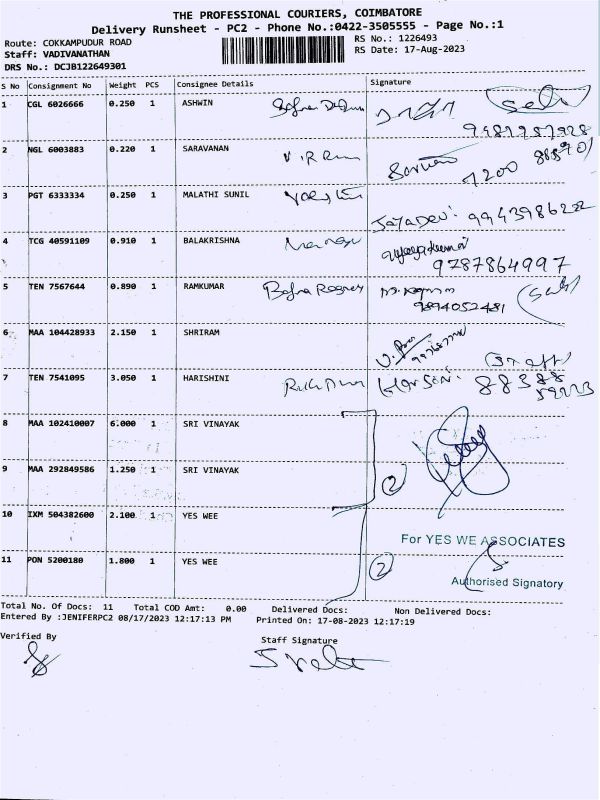 THE PROFESSIONAL COURIERS, COIMBATORE
Delivery Runsheet - PC2 - Phone No.:0422-3505555 - Page No.:1
Route: COKKAMPUDUR ROAD
RS No.: 1226493
Staff: VADIVANATHAN
RS Date: 17-Aug-2023
DRS No.: DCJB122649301
S No Consignment No Weight PCS Consignee Details Signature
1 CGL 6026666 0.250 1 ASHWIN
2 NGL 6003883 0.220 1 SARAVANAN
7200
3 PGT 6333334 0.250 1 MALATHI SUNIL
JayaDev: 9943986222
4 TCG 40591109 0.910 1 BALAKRISHNA
9787864997
5 TEN 7567644 0.890 1 RAMKUMAR
9894052481
6 MAA 104428933 2.150 1 SHRIRAM
(Staff)
7 TEN 7541095 3.050 1 HARISHINI
8 MAA 102410007 6.000 1 SRI VINAYAK
9 MAA 292849586 1.250 1 SRI VINAYAK
2
10 IXM 504382600 2.100 1 YES WEE
For YES WE ASSOCIATES
11 PON 5200180 1.800 1 YES WEE
2
Authorised Signatory
Total No. Of Docs: 11 Total COD Amt: 0.00 Delivered Docs: Non Delivered Docs:
Entered By :JENIFERPC2 08/17/2023 12:17:13 PM Printed On: 17-08-2023 12:17:19
Verified By
Staff Signature